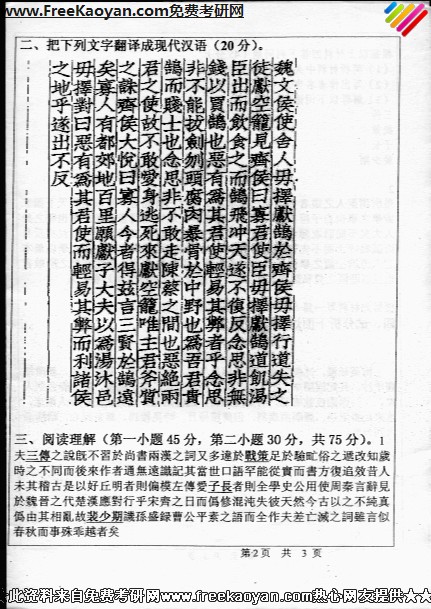 www.FreeKaoyan.Com免费考研网
二、把下列文字翻译成现代汉语（20分）。
魏文侯使舍人毋擇獻鵠於齊侯毋擇行道失之
徒獻空籠見齊侯曰寡君使臣毋擇獻鵠道飢渴
臣出而飲食之而鵠飛冲天遂不復反念思非無
錢以買鵠也惡有爲其君使輕易其弊者乎念思
非不能拔劍刎頭腐肉暴骨於中野也爲吾君貴
鵠而賤士也念思非不敢走陳蔡之間也惡絕兩
君之使故不敢愛身逃死來獻空籠唯主君斧質
之誅齊侯大悅曰寡人今者得茲言三賢於鵠遠
矣寡人有都郊地百里願獻子大夫以爲湯沐邑
毋擇對曰惡有爲其君使而輕易其弊而利諸侯
之地乎遂出不反
三、阅读理解（第一小题45分，第二小题30分，共75分）。1
夫三傳之說旣不習於尚書兩漢之詞又多違於戰策足於驗甿俗之遞改知歲
時之不同而後來作者通無遠識記其當世口語罕能從實而書方復追效昔人
未其稽古是以好丘明者則偏模左傳愛子長者則全學史公用使周秦言辭見
於魏晉之代楚漢應對行乎宋齊之日而僞修混沌失彼天然今古以之不純真
僞由其相亂故裴少期譏孫盛錄曹公平素之語而全作夫差亡滅之詞雖言似
春秋而事殊乖越者矣
第2页 共 3 页
此资料来自免费考研网www.freekaoyan.com热心网友提供★★